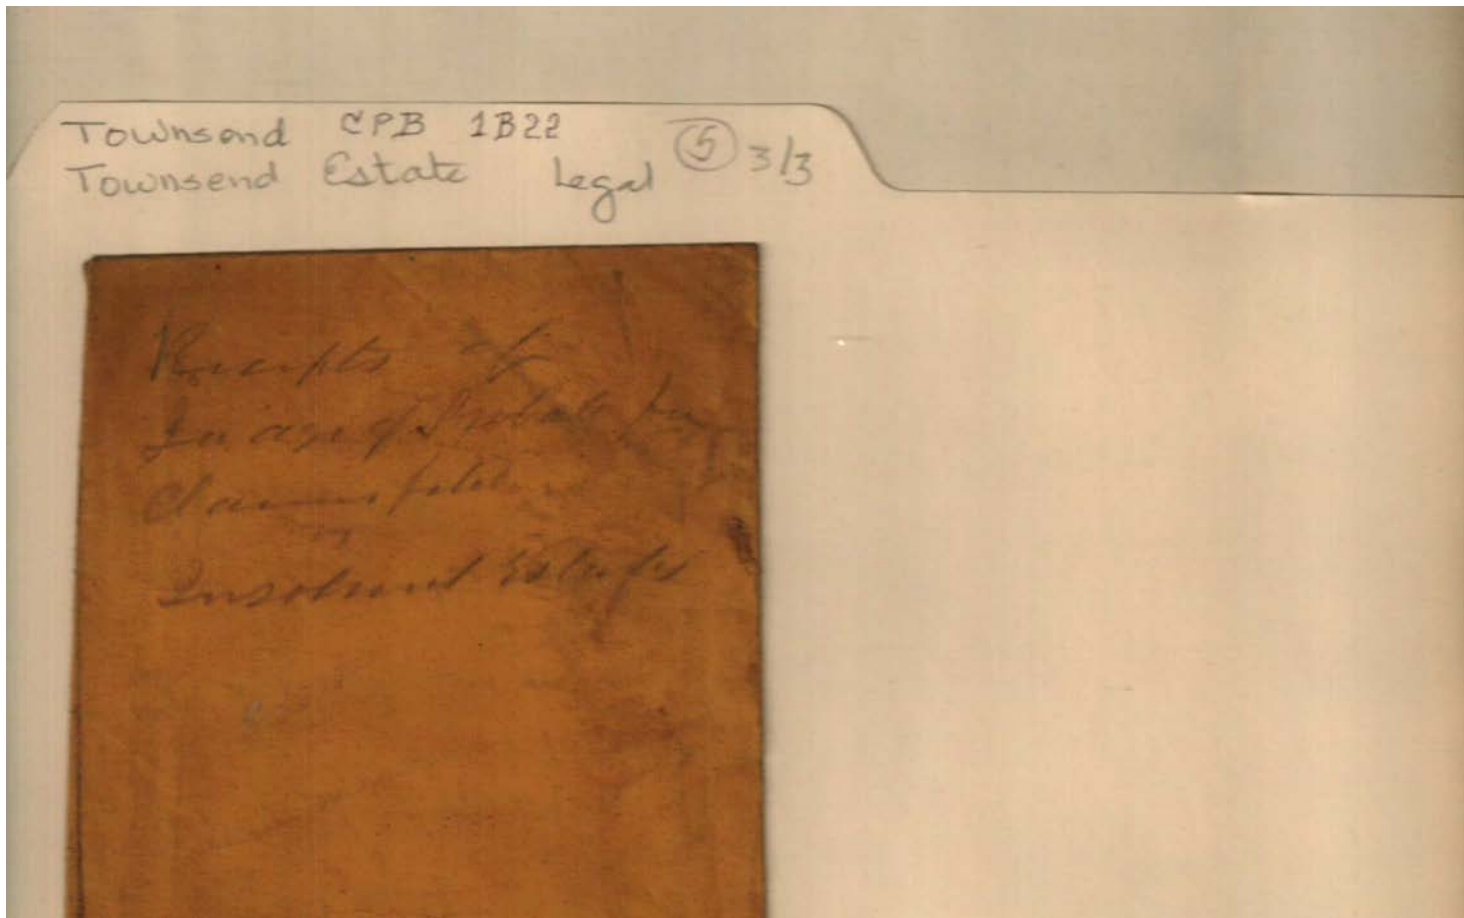 Townsend CPB 1B22
Townsend Estate Legal 5 3/3
Receipts of
Judge of Probate for
Claims filed
in
Insolvent Estates